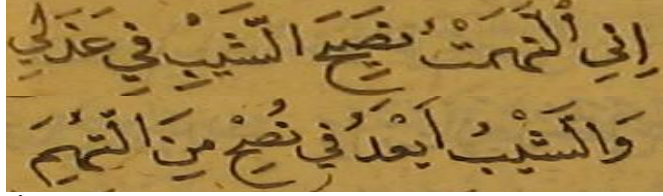 اِنِّي اتَّهَمْتُ نَصِيحَ الشَّيْبِ فِي عَذَلِي
وَالشَّيْبُ اَبْعَدُ فِي نُصْحٍ مِنَ التُّهَمِ